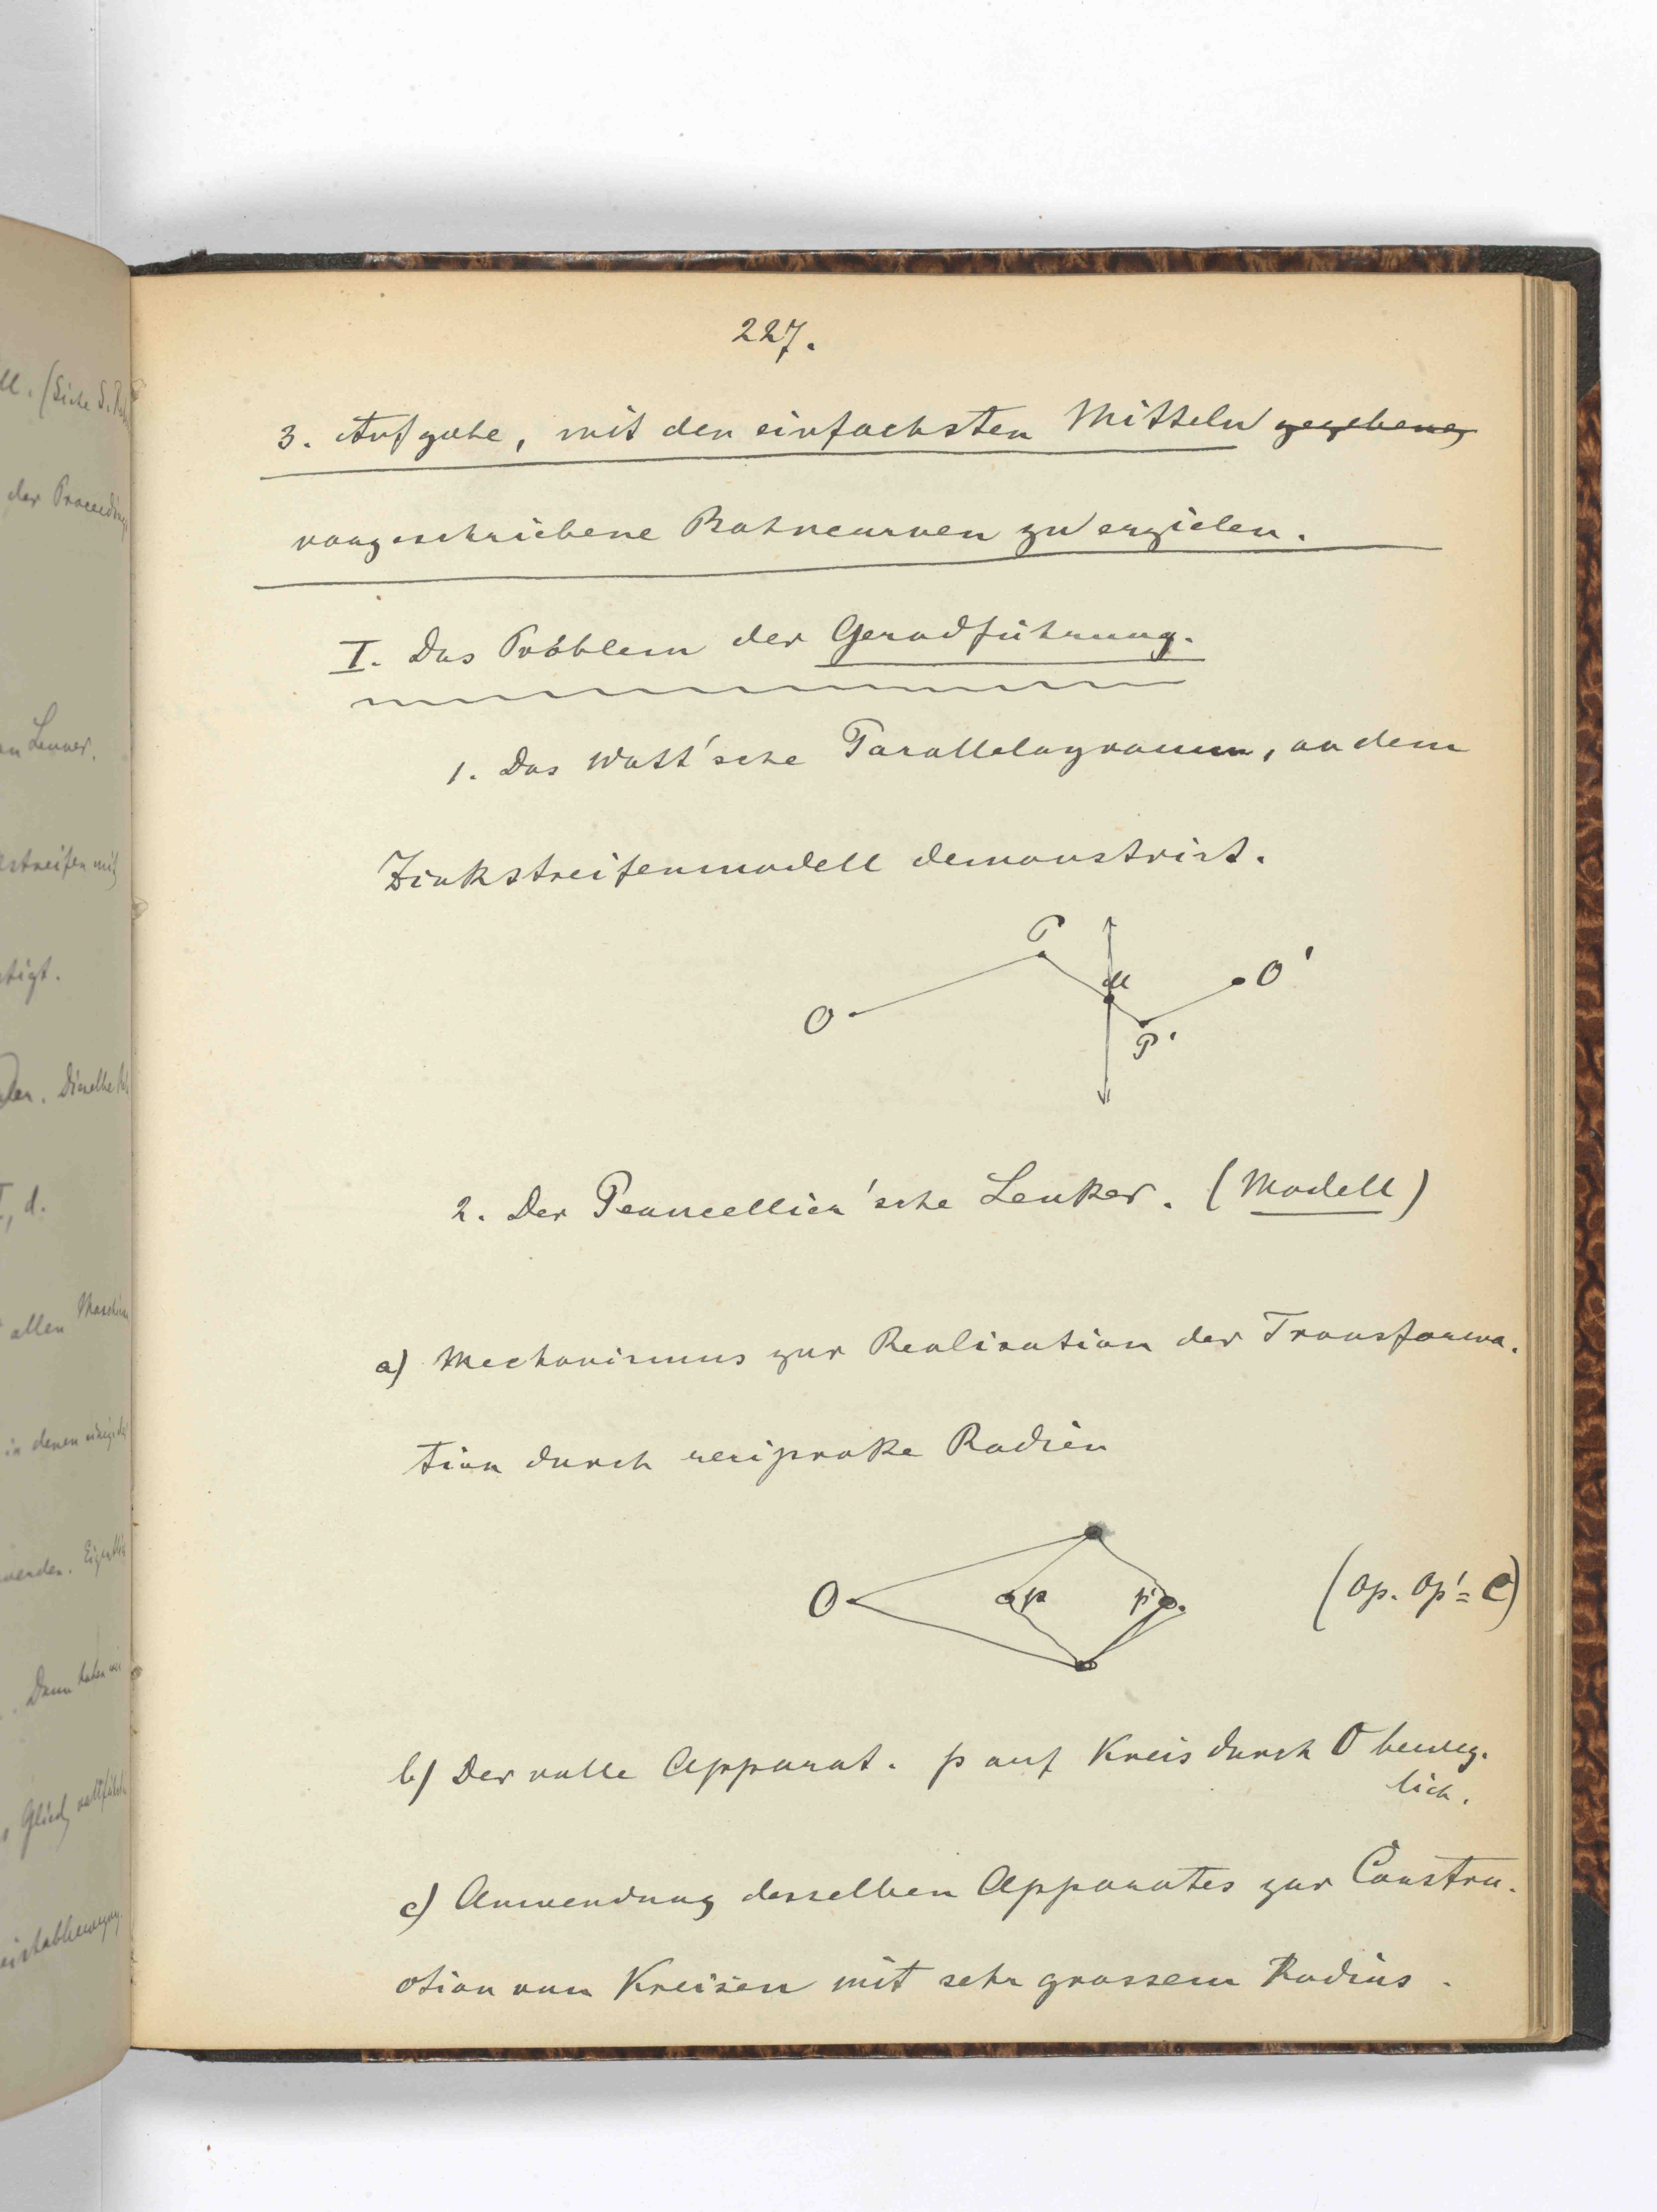 227.
3. Aufgabe, mit den einfachsten Mitteln gegebene
vorgeschriebene Bahncurven zu erzielen.
I. Das Problem der Geradführung.
1. Das Watt'sche Parallelogramm, an dem
Zinkstreifenmodell demonstrirt.
P
M
O
O'
P'
2. Der Peaucellier'sche Lenker. (Modell)
a) Mechanismus zur Realisation der Transforma-
tion durch reciproke Radien
O p p' (Op. Op' = C)
b) Der volle Apparat. p auf Kreis durch O beweg-
lich.
c) Anwendung desselben Apparates zur Constru-
ction von Kreisen mit sehr grossem Radius.
ll. (Siehe S.
der Proceedings
an Lenker.
streifen mit
tigt.
den. Dieselbe
I, d.
allen Maschinen
in denen
werden.
Dann haben wir
Glied